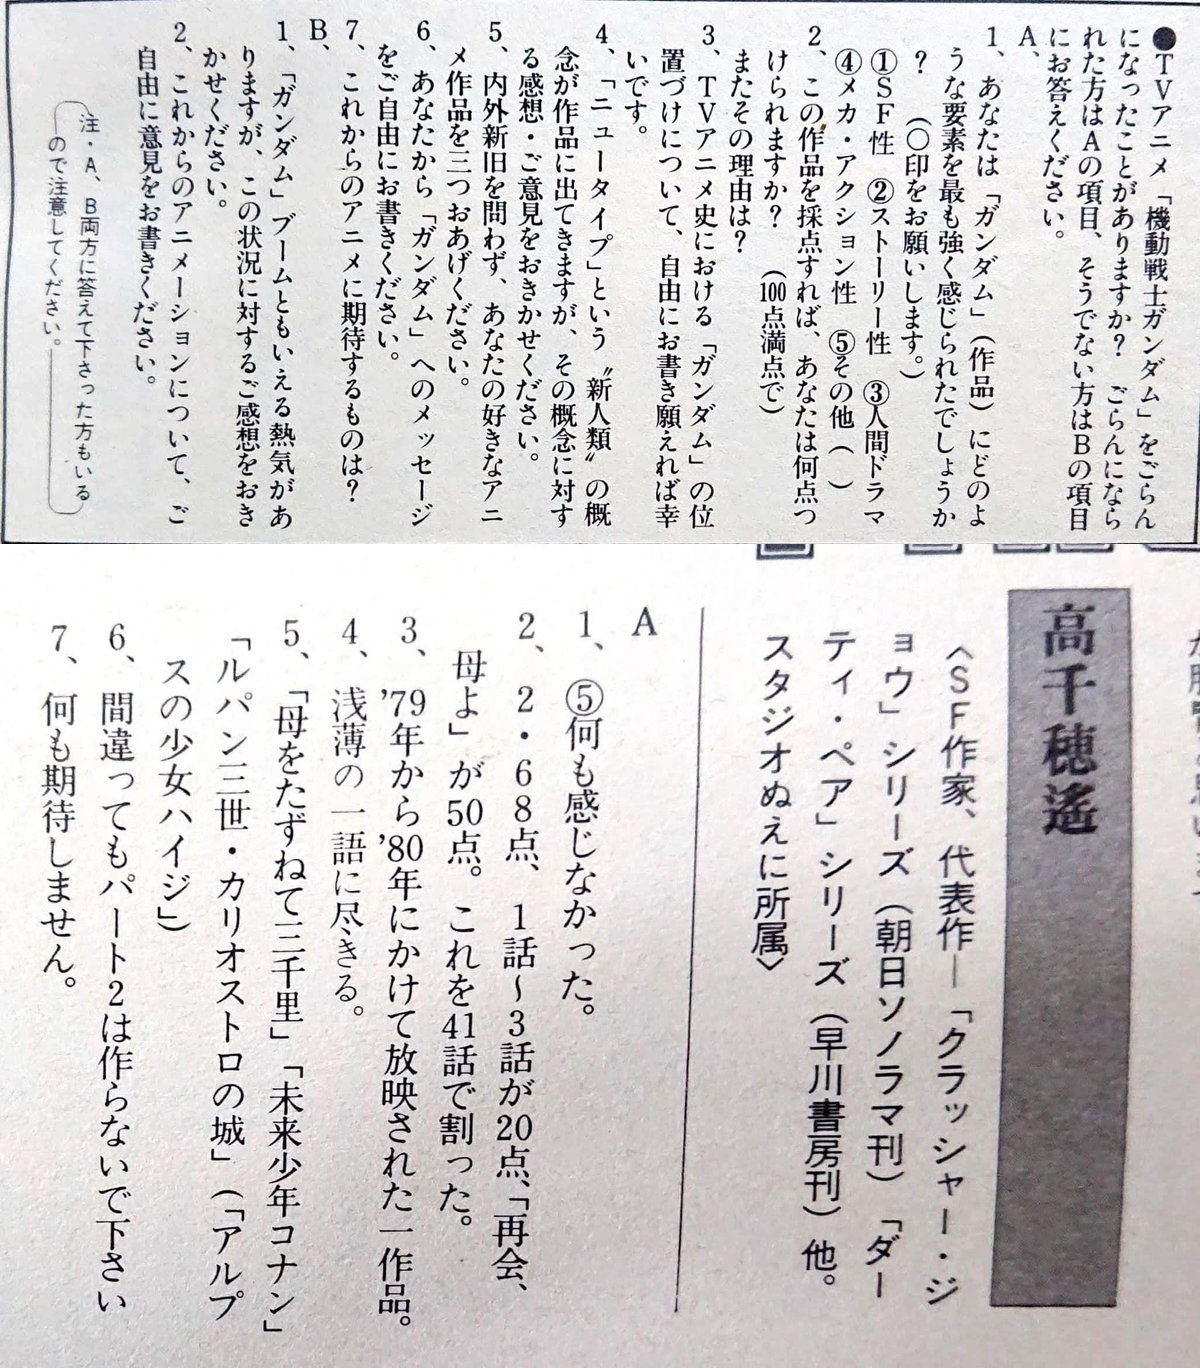 ●TVアニメ「機動戦士ガンダム」をごらん
になったことがありますか？　ごらんになら
れた方はAの項目、そうでない方はBの項目
にお答えください。
A、
1、あなたは「ガンダム」（作品）にどのよ
うな要素を最も強く感じられたでしょうか
？　（○印をお願いします。）
①SF性　②ストーリー性　③人間ドラマ
④メカ・アクション性　⑤その他（　）
2、この作品を採点すれば、あなたは何点つ
けられますか？　（100点満点で）
またその理由は？
3、TVアニメ史における「ガンダム」の位
置づけについて、自由にお書き願えれば幸
いです。
4、「ニュータイプ」という〝新人類〟の概
念が作品に出てきますが、その概念に対す
る感想・ご意見をおきかせください。
5、内外新旧を問わず、あなたの好きなアニ
メ作品を三つおあげください。
6、あなたから「ガンダム」へのメッセージ
をご自由にお書きください。
7、これからのアニメに期待するものは？
B、
1、「ガンダム」ブームともいえる熱気があ
りますが、この状況に対するご感想をおき
かせください。
2、これからのアニメーションについて、ご
自由に意見をお書きください。
注・A、B両方に答えて下さった方もいる
ので注意してください。
高千穂遙
〈SF作家、代表作―「クラッシャー・ジ
ョウ」シリーズ（朝日ソノラマ刊）「ダー
ティ・ペア」シリーズ（早川書房刊）他。
スタジオぬえに所属〉
A
1、⑤何も感じなかった。
2、2・68点、1話〜3話が20点、「再会、
母よ」が50点。これを41話で割った。
3、'79年から'80年にかけて放映された一作品。
4、浅薄の一語に尽きる。
5、「母をたずねて三千里」「未来少年コナン」
「ルパン三世・カリオストロの城」（「アルプ
スの少女ハイジ」）
6、間違ってもパート2は作らないで下さい
7、何も期待しません。